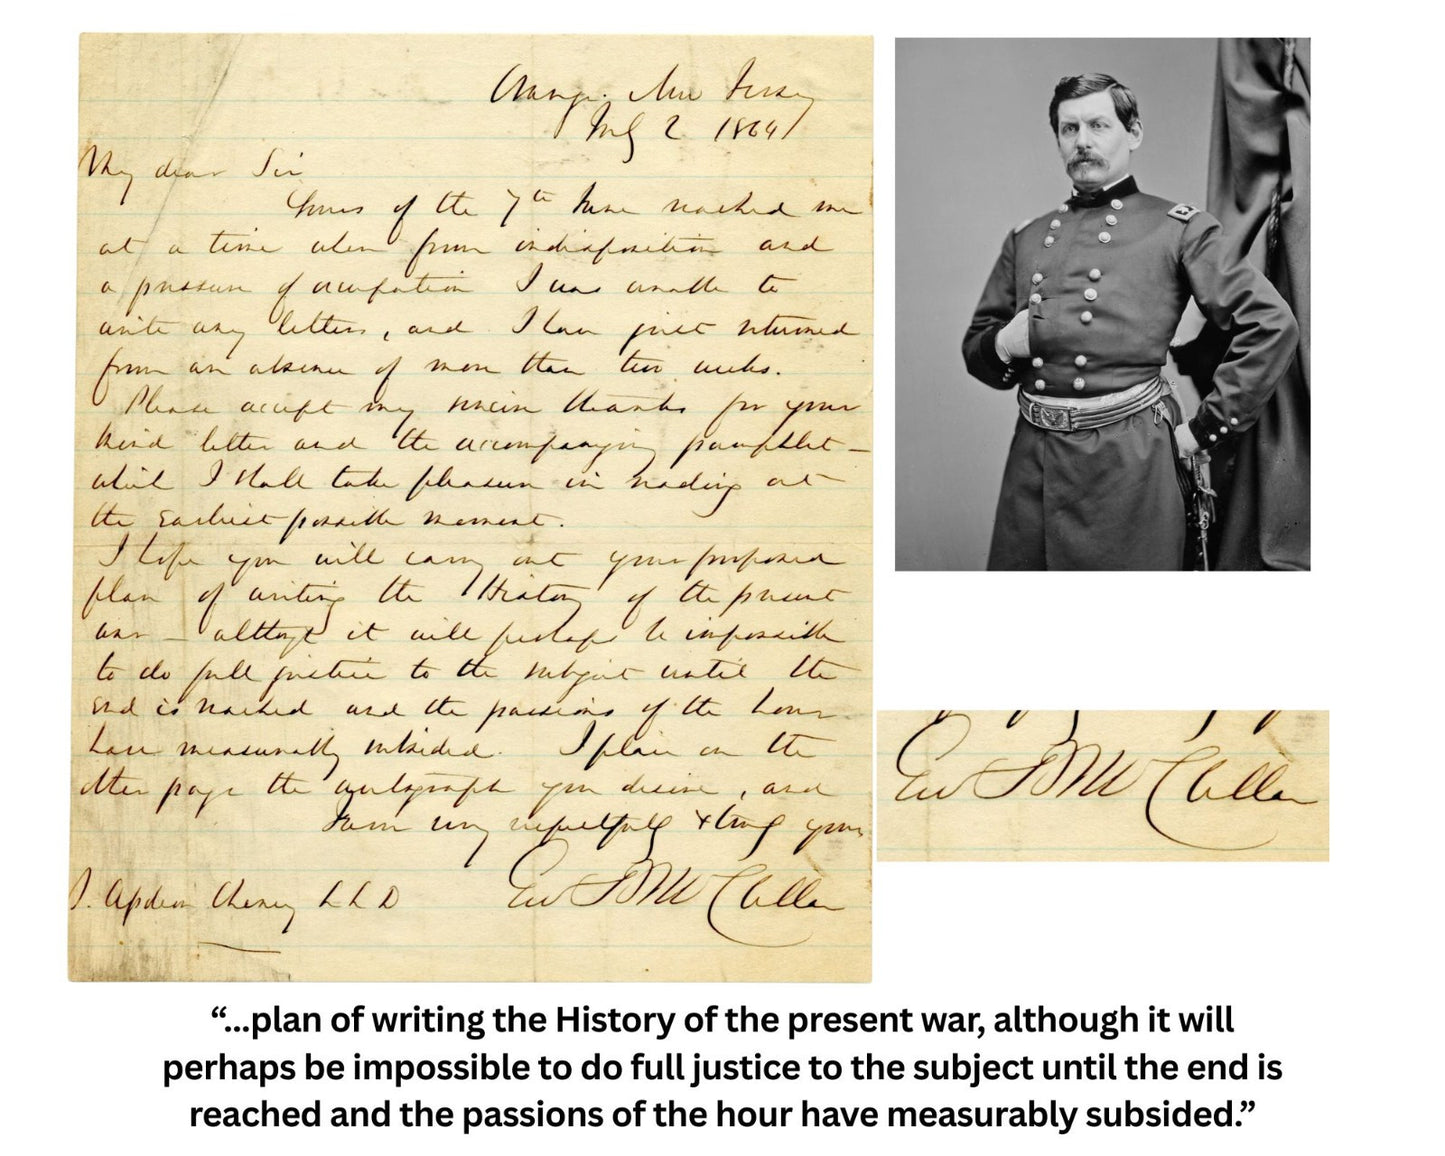 Orange. New Jersey
July 2 1864
My dear Sir
Yours of the 7th June reached me
at a time when from indisposition and
a pressure of occupation I was unable to
write any letters, and I have just returned
from an absence of more than two weeks.
Please accept my sincere thanks for your
kind letter and the accompanying pamphlet —
which I shall take pleasure in reading at
the earliest possible moment.
I hope you will carry out your proposed
plan of writing the History of the present
war — altho it will perhaps be impossible
to do full justice to the subject until the
end is reached and the passions of the hour
have measurably subsided. I place on the
other page the autograph you desire, and
I am very respectfully & truly yours
Geo B McClellan
Cheney L L D
Geo B McClellan
“...plan of writing the History of the present war, although it will
perhaps be impossible to do full justice to the subject until the end is
reached and the passions of the hour have measurably subsided.”